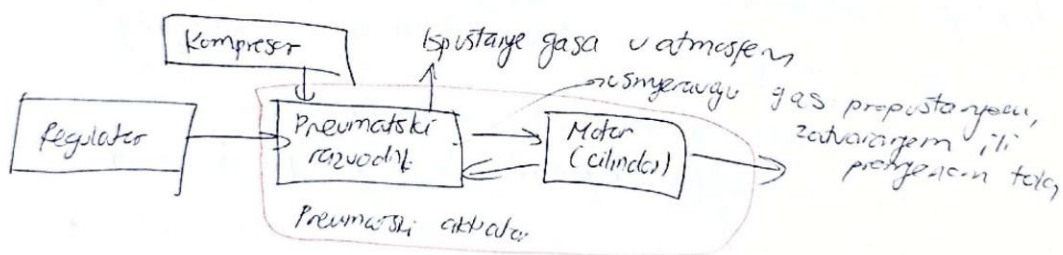 Kompresor
Ispustanje gasa u atmosferu
Regulator
Pneumatski
razvodnik
Motor
(cilindar)
usmjeravaju gas propustanjem,
zatvaranjem ili
promjenom toka
Pneumatski aktuator